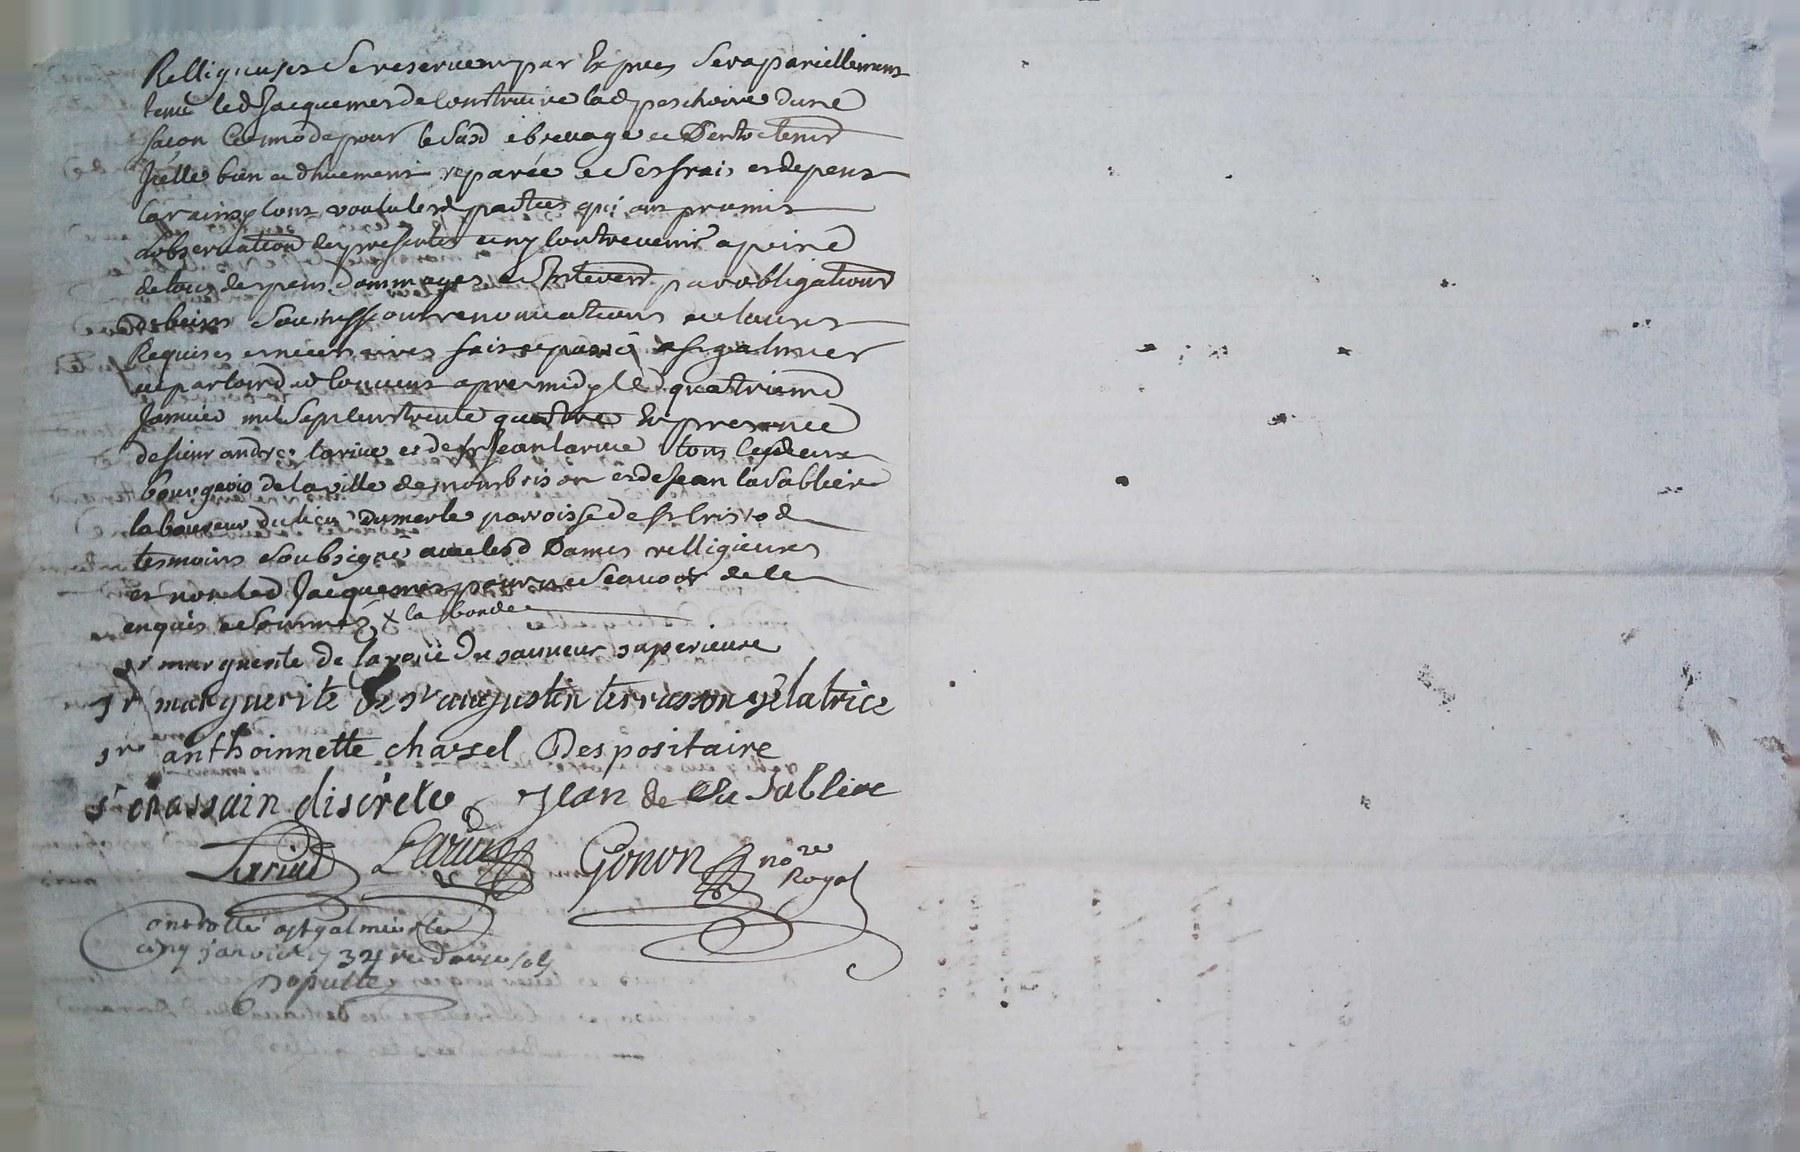 Relligieuses se reservent par Expres sera pareillement
tenu led Jacquemet de Construire lad peschoire dune
facon Commode pour lesusd ebreuage et Dentretenir
Jcelle bien et dhuement reparée a ses frais et depens
Car ainsy lont voulu lesd parties qui ont promis
dobservation des presentes et ny Contrevenir a peine
de tous despens dommages et Interets par obligations
de biens Soumissions renonciations et clauses
Requises et necessaires fait et passé a st galmier
au parloir dud Couvent apres midy le quatrieme
Januier mil Sept cent trente quatre En presence
de sieur andre lariue et de sr Jean lariue tous Cy deux
bourgeois de la ville de montbrison et de Jean la Sabliere
laboureur du lieu du merle paroisse de st Cristo &
tesmoins Soubsigné auec lesd Dames relligieuses
et non led Jacquemet pour ne Scauoir de ce
enquis et Sommés x la bonde
sr marguerite de la roüe du sauueur superieure
sr marguerite de st augustin terrasson Zélatrice
sr anthoinnette chazel Despositaire
sr chassain discréte Jean de la Sabliere
Lariue Lariue Gonon no re
Royal
Controllé a st galmier le
cinq januier 1734 sols